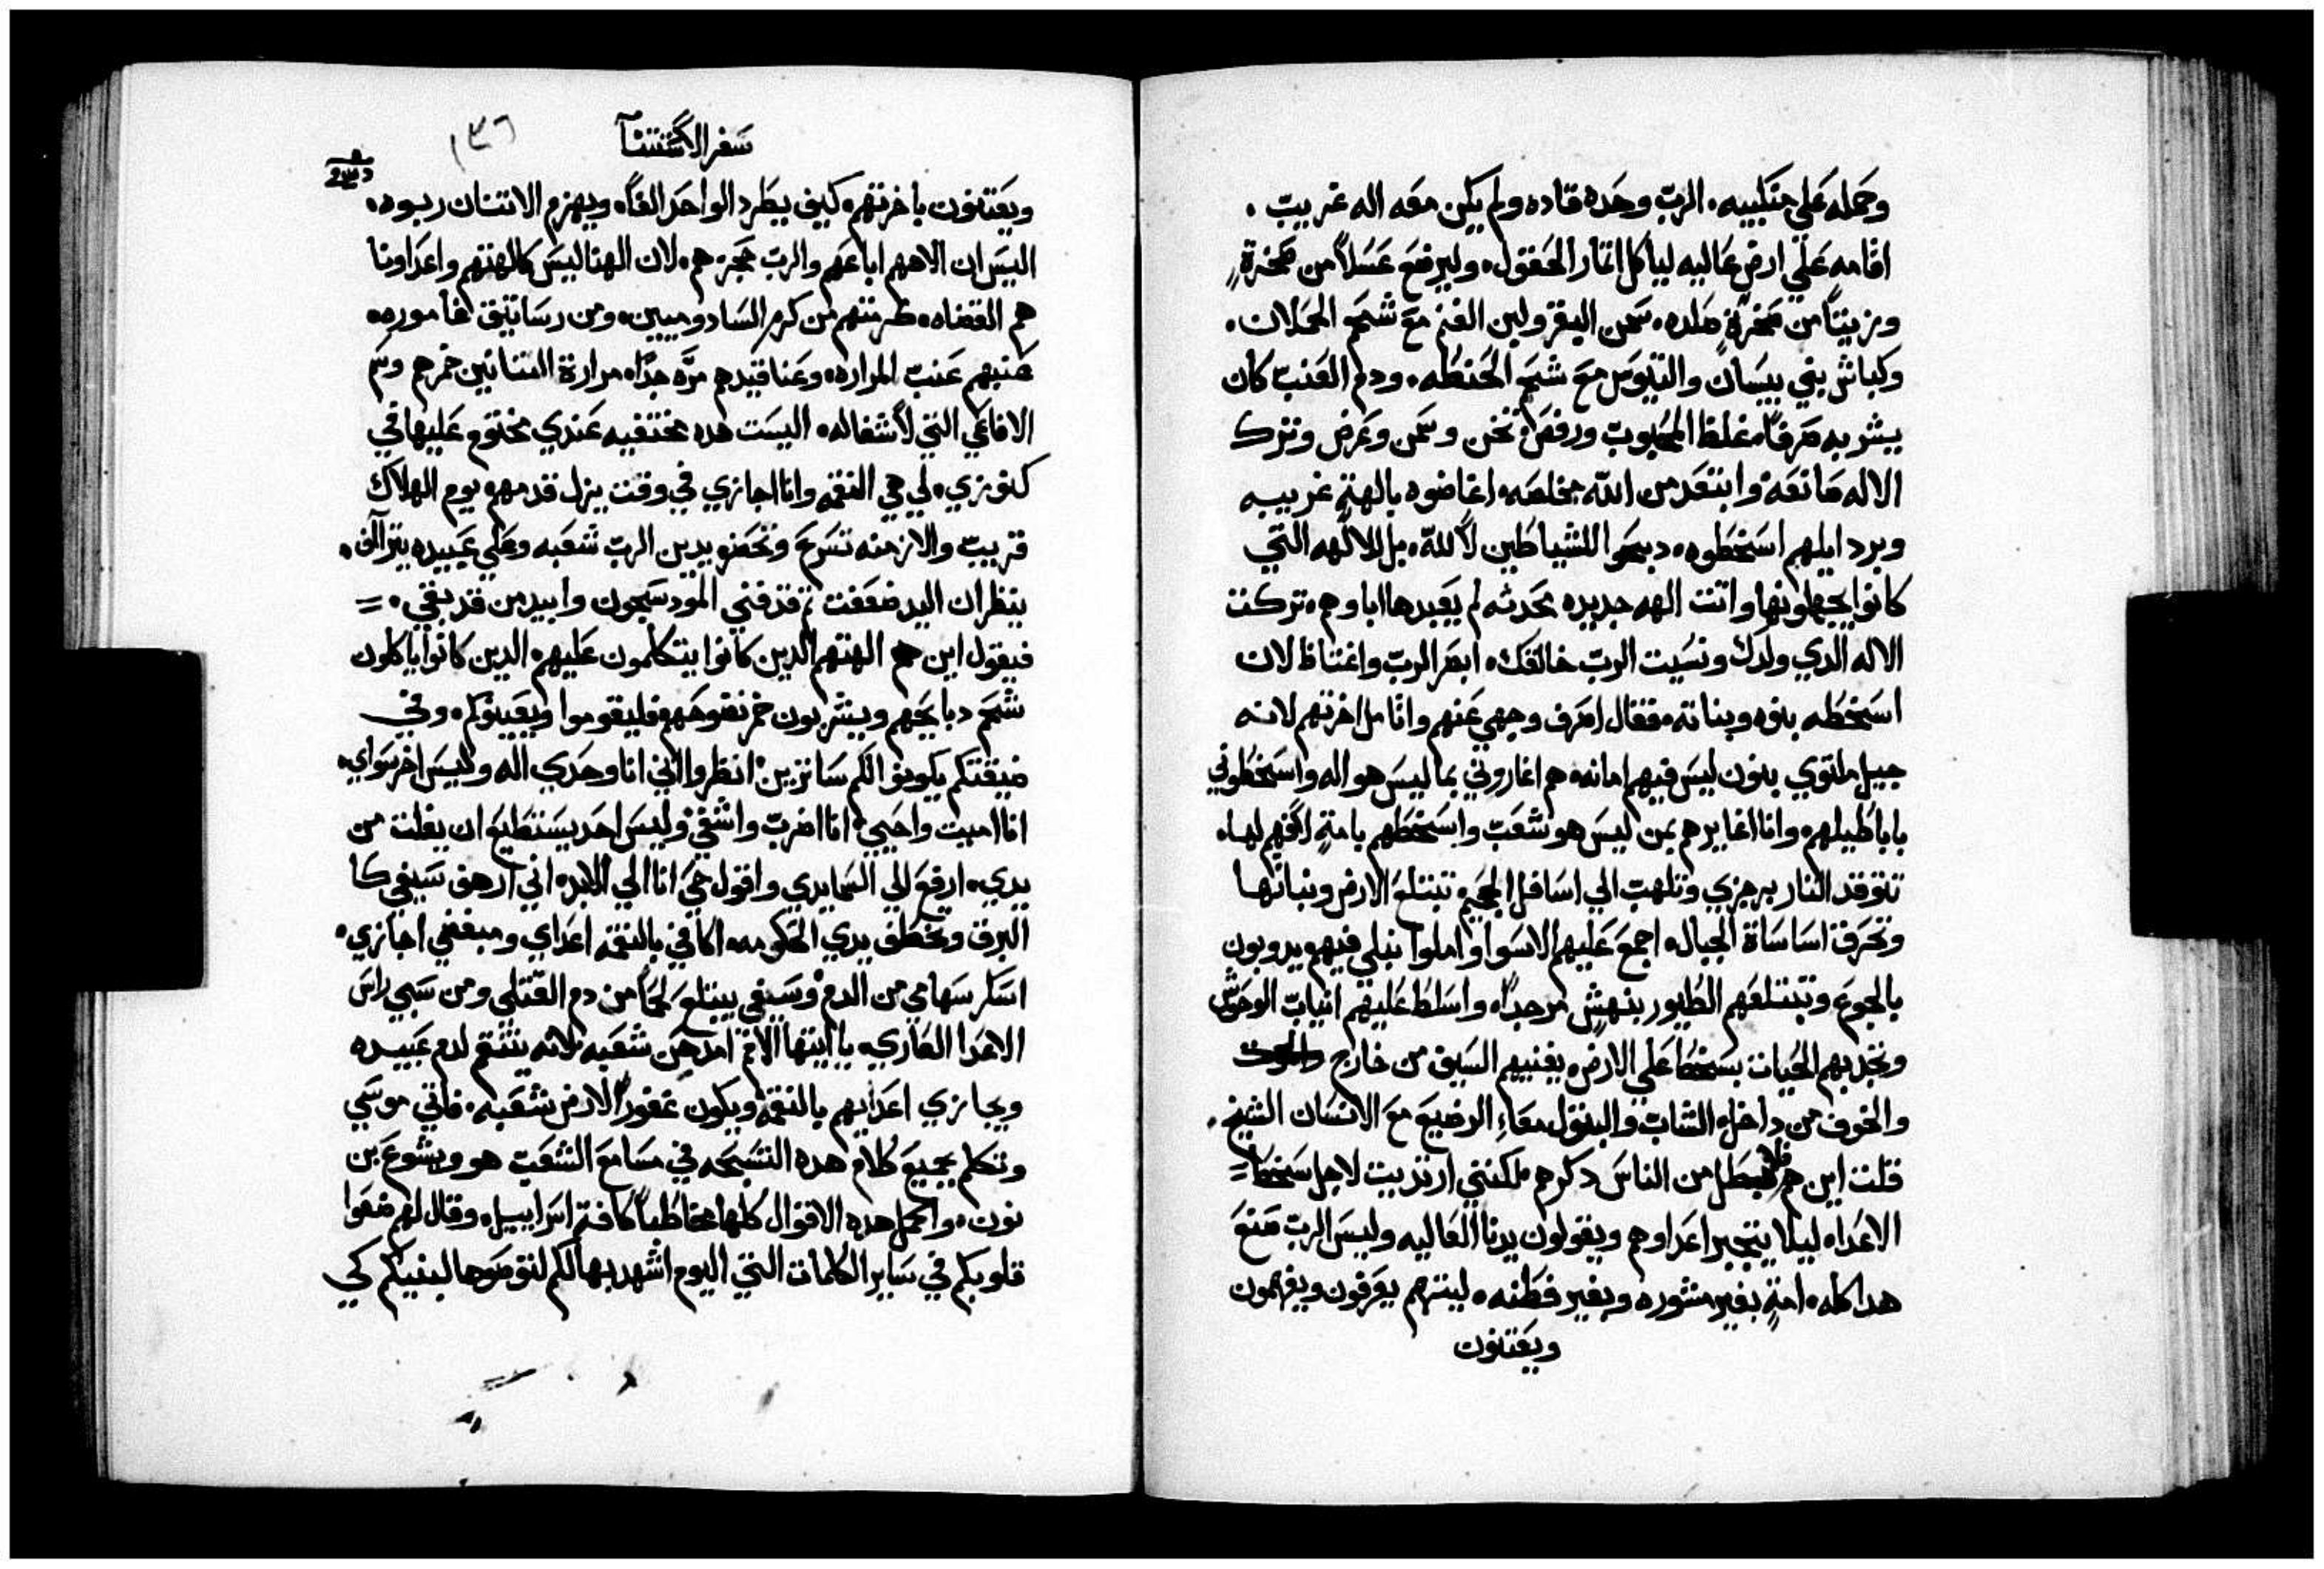 وحمله علي منكبيه. الرب وحده قاده ولم يكن معه اله غريب.
اقامه علي ارض عاليه لياكل اثمار الحقول. وليرضع عسلاً من صخرةٍ
وزيتاً من صخرةٍ صلده. سمن البقر ولبن الغنم مع شحم الحملان.
وكباش بني بيسان والتيوس مع شحم الحنطه. ودم العنب كان
يشربه صرفاً. غلظ المحبوب ورفص. تخن وسمن وعرض وترك
الاله صانعه. وابتعد من الله مخلصه. اغاضوه بالهةٍ غريبه
وبردايلهم اسخطوه. دبحوا للشياطين لا لله. بل للالهه التي
كانوا يجهلونها واتت الهه جديده محدثه لم يعبدها اباوهم. تركت
الاله الدي ولدك ونسيت الرب خالقك. ابصر الرب واغتاظ لان
اسخطه بنوه وبناته. فقال اصرف وجهي عنهم واتامل اخرتهم لانه
جيل ملتوي بنون ليس فيهم امانه. هم اغاروني بما ليس هو اله واسخطوني
باباطيلهم. وانا اغايرهم بمن ليس هو شعب واسخطهم بامةٍ لافهم لها.
تتوقد النار برجزي وتلهب الي اسافل الجحيم. تبتلع الارض ونباتها
وتحرق اساسات الجبال. اجمع عليهم الاسوا واملوا نبلي فيهم. يدوبون
بالجوع وتبتلعهم الطيور بنهشٍ مر جداً. واسلط عليهم انياب الوحوش
وتجدبهم الحيات بسخط علي الارض. يفنيهم السيف من خارج
والخوف من داخل. الشاب والبتول معاً. الرضيع مع الانسان الشيخ.
قلت اين هم فلابطل من الناس دكرهم. لكنني ارتديت لاجل سخط
الاعداء ليلا يتجبر اعداوهم ويقولون يدنا العاليه وليس الرب صنع
هدا كله. امةٍ بغير مشوره وبغير فطنه. ليتهم يعرفون ويفهمون
ويعتنون
سفر الاستثنا ١٣٦
ويعتنون باخرتهم. كيف يطرد الواحد الفاً. ويهزم الاتنان ربوه.
اليس ان الاههم اباعهم والرب حجزهم. لان الهنا ليس كالهتهم واعداونا
هم القضاه. كرمتهم من كرم السادوميين. ومن رساتيق غاموره.
عنبهم عنب المراره. وعناقيدهم مرّه جداً. مرارة التنانين خمرهم وسم
الافاعي التي لا شفا له. اليست هده مختفيه عندي مختوم عليها في
كنوزي. لي هي النقمه وانا اجازي في وقت يزل قدمهم. يوم الهلاك
قريب والازمنه تسرع وتحضر. يدين الرب شعبه وعلي عبيده يتراف.
ينظر ان اليد ضعفت قد فني المودسجون وابيد من قد بقي.
فيقول اين هم الهتهم الدين كانوا يتكلمون عليهم. الدين كانوا ياكلون
شحم دبايحهم ويشربون خمر نضوحهم. فليقوموا ويعينوكم. وفي
ضيقتكم يكونوا لكم ساترين. انظروا اني انا وحدي اله وليس اخر سواي.
انا اميت واحيي. انا اضرب واشفي. وليس احد يستطيع ان يفلت من
يدي. ارفع الي السما يدي واقول حي انا الي الابد. اني ارهف سيفي كا
البرق وتخطف يدي الحكومه. اكافي بالنقمه اعداي ومبغضي اجازي.
اسكر سهامي من الدم. وسيفي يبتلع لحماً من دم القتلي ومن سبي راس
الاعدا العاري. يا ايتها الامم امدحن شعبه. لانه ينتقم لدم عبيده
ويجازي اعدايهم بالنقمه ويكون غفوراً لارض شعبه. فاتي موسي
وتكلم بجميع كلام هده التسبحه في مسامع الشعب هو ويشوع بن
نون. واكمل هده الاقوال كلها مخاطباً كافة اسراييل. وقال لهم ضعوا
قلوبكم في ساير الكلمات التي اليوم اشهد بها لكم لتوصوها لبنيكم كي